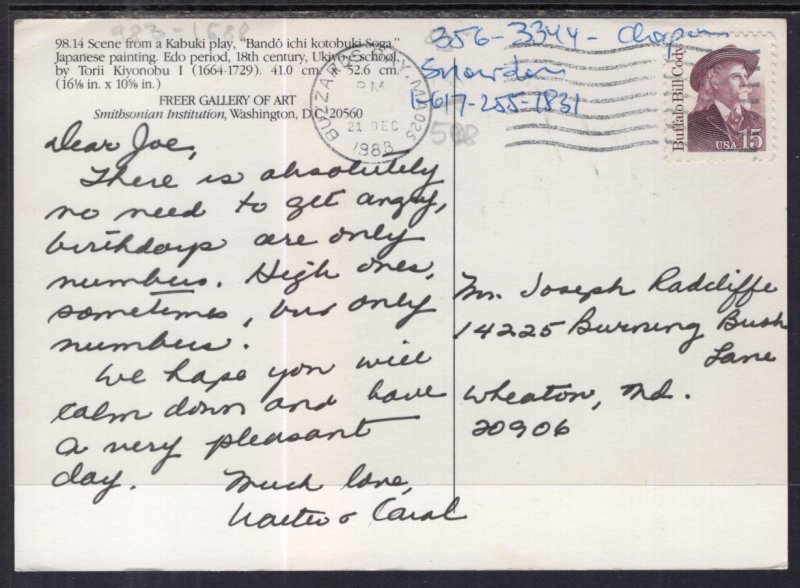 98.14 Scene from a Kabuki play, "Bandō ichi kotobuki Soga."
Japanese painting. Edo period, 18th century, Ukiyo-e school,
by Torii Kiyonobu I (1664-1729). 41.0 cm. x 52.6 cm.
(16⅛ in. x 10⅝ in.)
FREER GALLERY OF ART
Smithsonian Institution, Washington, D.C. 20560
356-3344 - Chapin
Snowden
617-255-1831
BUZZARDS BAY, MA 025
PM
21 DEC
1988
Buffalo Bill Cody
USA 15
Dear Joe,
There is absolutely
no need to get angry,
birthdays are only
numbers. High ones,
sometimes, but only
numbers.
We hope you will
calm down and have
a very pleasant
day.
Much love,
Walter & Carol
Mr. Joseph Radcliffe
14225 Burning Bush
Lane
Wheaton, Md.
20906